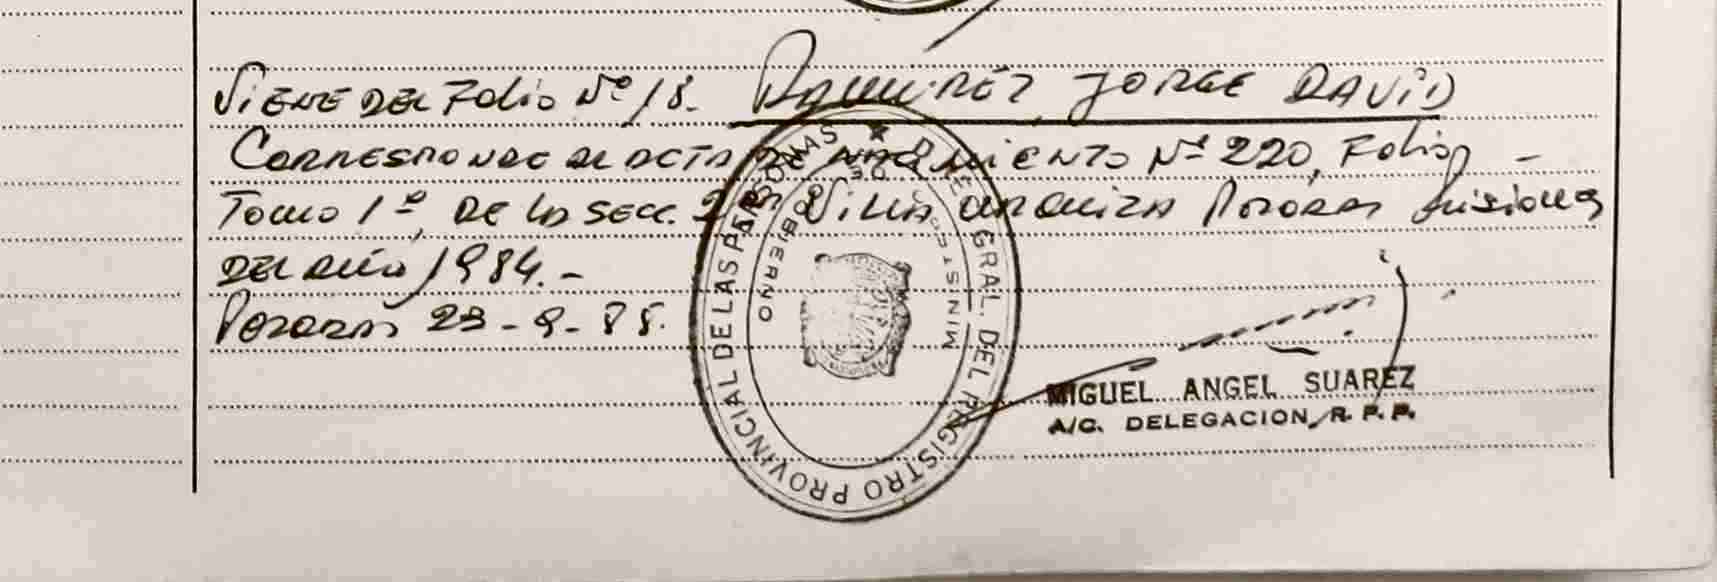 Viene del Folio Nº 18. Ramirez, Jorge David
Corresponde al acta de nacimiento Nº 220, Folio -
Tomo 1º, de la Secc. 2da Villa Urquiza Posadas Misiones
del año 1984.-
Posadas 23-9-85.
DIREC. GRAL. DEL REGISTRO PROVINCIAL DE LAS PERSONAS
MINIST. DE GOBIERNO
MIGUEL ANGEL SUAREZ
A/C. DELEGACION, R. P. P.